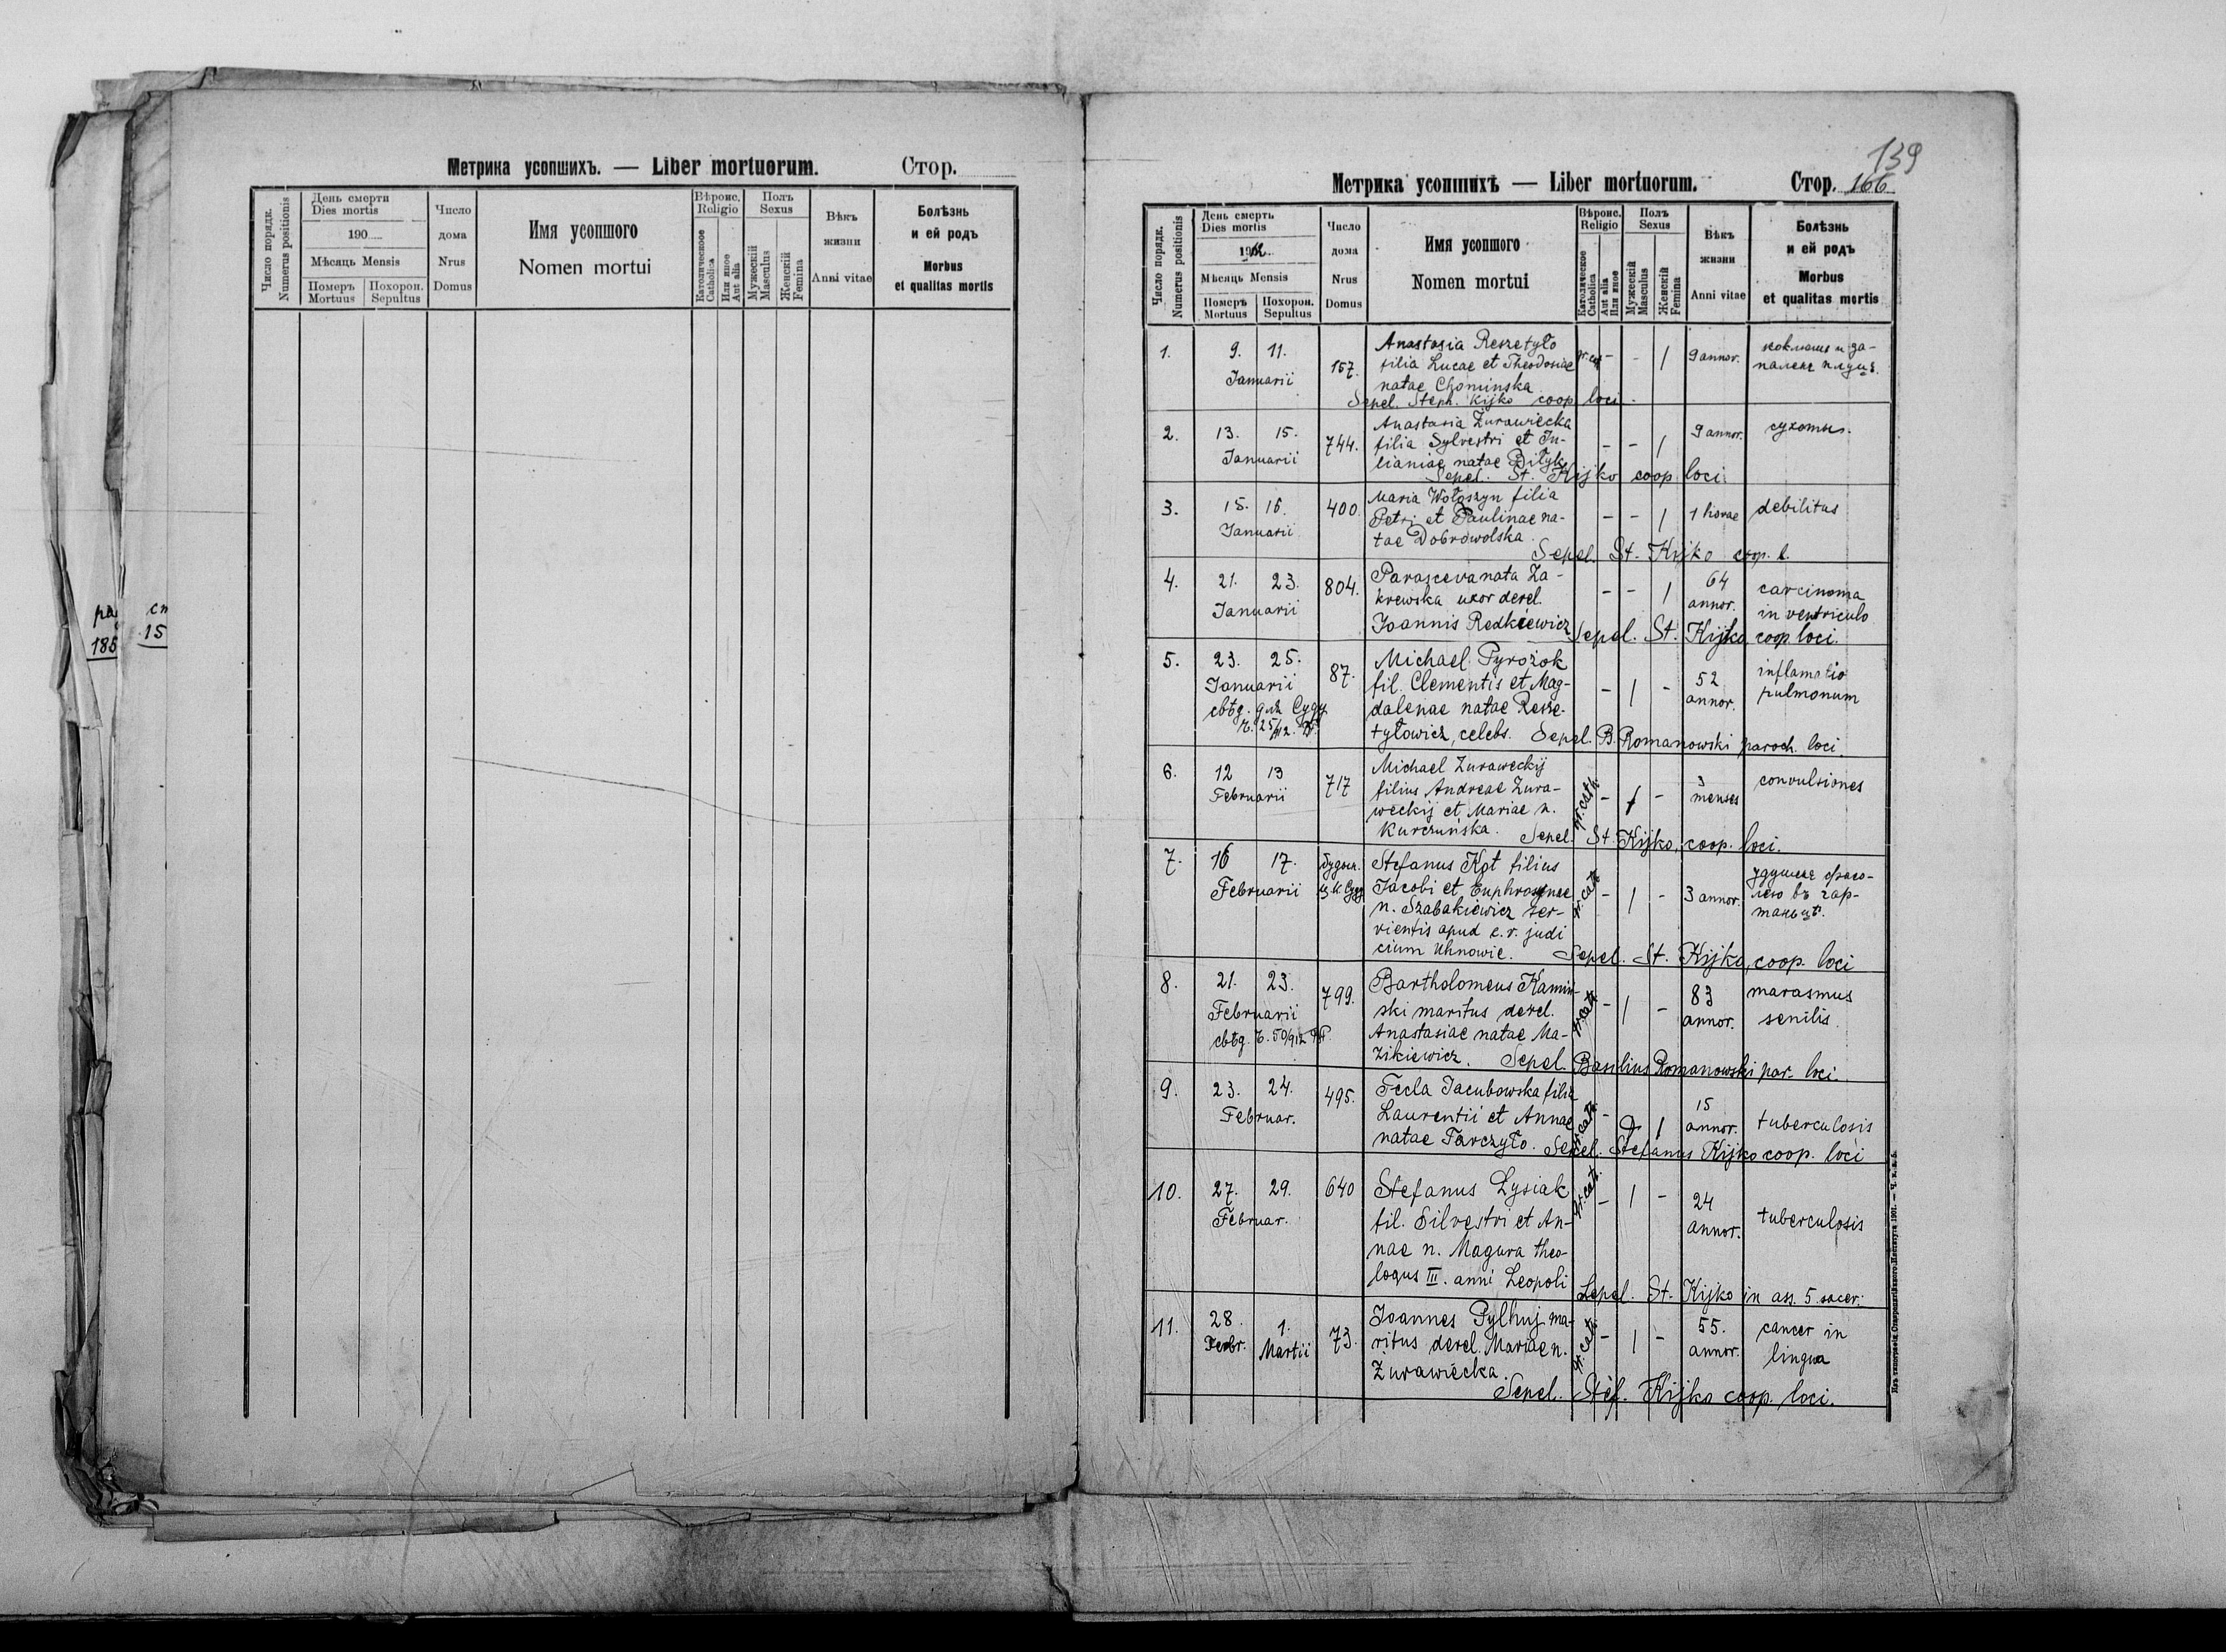 Метрика усопшихъ. — Liber mortuorum. Стор.
Число порядк.
Numerus positionis
День смерти
Dies mortis
190
Мѣсяць Mensis
Померъ
Mortuus
Похорон.
Sepultus
Число
дома
Nrus
Domus
Имя усопшого
Nomen mortui
Вѣроис.
Religio
Католическое
Catholica
Или иное
Aut alia
Полъ
Sexus
Мужескій
Masculus
Женскій
Femina
Вѣкъ
жизни
Anni vitae
Болѣзнь
и ей родъ
Morbus
et qualitas mortis
ра
185
сп
15
139
Метрика усопшихъ — Liber mortuorum. Стор. 166
Число порядк.
Numerus positionis
День смерть
Dies mortis
1912
Мѣсяць Mensis
Померъ
Mortuus
Похорон.
Sepultus
Число
дома
Nrus
Domus
Имя усопшого
Nomen mortui
Вѣроис.
Religio
Католическое
Catholica
Aut alia
Или иное
Полъ
Sexus
Мужескій
Masculus
Женскій
Femina
Вѣкъ
жизни
Anni vitae
Болѣзнь
и ей родъ
Morbus
et qualitas mortis
1. 9. 11. Januarii 157.
Anastasia Reszetyło
filia Lucae et Theodosiae
natae Chominska
gr. cat. - - / 9 annor.
коклюшъ и за-
паленє плуцъ.
Sepel. Steph. Kijko coop loci.
2. 13. 15. Januarii 744.
Anastasia Żurawiecka
filia Sylvestri et Ju-
lianiae natae Biłyk
- - / 9 annor. сухоты.
Sepel. St. Kijko coop loci
3. 15. 16. Januarii 400.
Maria Wołoszyn filia
Petri et Paulinae na-
tae Dobrowolska.
- - / 1 horae debilitas
Sepel. St. Kijko coop. l.
4. 21. 23. Januarii 804.
Parasceva nata Za-
krewska uxor derel.
Joannis Redkiewicz
- - / 64 annor.
carcinoma
in ventriculo
Sepel. St. Kijko, coop loci.
5. 23. 25. Januarii 87.
свѣд. для Суду
Ч. 25/912.
Michael Pyrożok
fil. Clementis et Mag-
dalenae natae Resze-
tyłowicz, celebs.
- / - 52 annor.
inflamatio
pulmonum
Sepel. B. Romanowski paroch. loci.
6. 12 13 Februarii 717
Michael Żuraweckij
filius Andreae Żura-
weckij et Mariae n.
Kurczuńska.
gr. cath. - / - 3 menses convulsiones
Sepel. St. Kijko, coop. loci.
7. 16 17. Februarii
Stefanus Kot filius
Jacobi et Euphrosynae
n. Szabakiewicz ser-
vientis apud c. r. judi
cium Uhnowie.
gr. cath. - / - 3 annor.
удушенє фасо-
лею въ гар-
танцѣ.
Sepel. St. Kijko, coop. loci
8. 21. 23. Februarii 799.
свѣд. Ч. 50/912
Bartholomeus Kamiń-
ski maritus derel.
Anastasiae natae Ma-
zikiewicz.
gr. cath. - / - 83 annor.
marasmus
senilis.
Sepel. Basilius Romanowski par. loci.
9. 23. 24. Februar. 495.
Tecla Jacubowska filia
Laurentii et Annae
natae Tarczyło.
gr. cath. - / 15 annor. tuberculosis
Sepel. Stefanus Kijko coop. loci
10. 27. 29. Februar. 640
Stefanus Lysiak
fil. Silvestri et An-
nae n. Magura theo-
logus III. anni Leopoli
gr. cath. - / - 24 annor. tuberculosis
Sepel. St. Kijko in ass. 5 sacer.
11. 28. Febr. 1. Martii 73.
Joannes Pylhuj ma-
ritus derel. Mariae n.
Żurawiecka.
gr. cath. - / - 55. annor.
cancer in
lingua
Sepel. Stef. Kijko coop. loci.
Изъ типографіи Ставропигійского Института 1901.